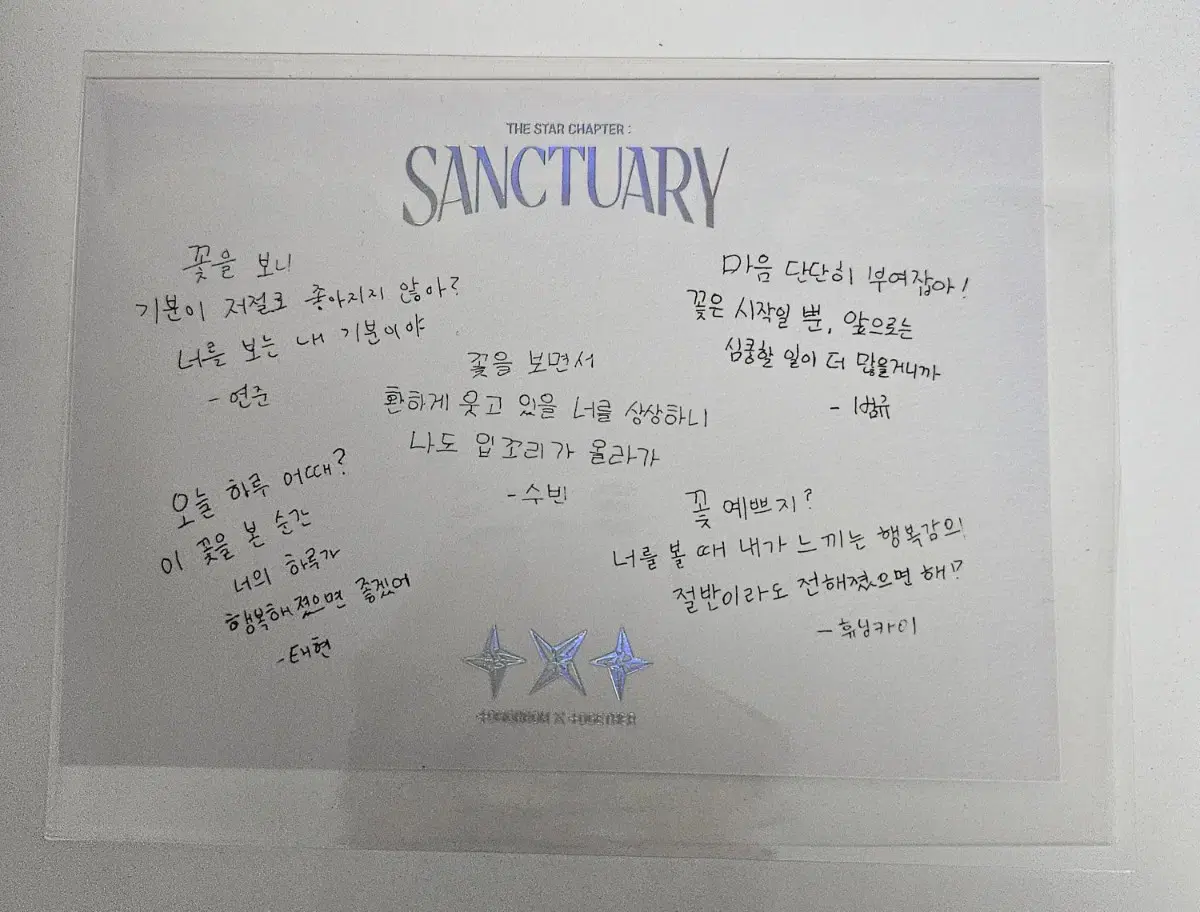 THE STAR CHAPTER :
SANCTUARY
꽃을 보니
기분이 저절로 좋아지지 않아?
너를 보는 내 기분이야
- 연준
마음 단단히 부여잡아!
꽃은 시작일 뿐, 앞으로는
심쿵할 일이 더 많을거니까
- 범규
꽃을 보면서
환하게 웃고 있을 너를 상상하니
나도 입꼬리가 올라가
- 수빈
오늘 하루 어때?
이 꽃을 본 순간
너의 하루가
행복해졌으면 좋겠어
- 태현
꽃 예쁘지?
너를 볼 때 내가 느끼는 행복감의
절반이라도 전해졌으면 해!?
- 휴닝카이
TOMORROW X TOGETHER